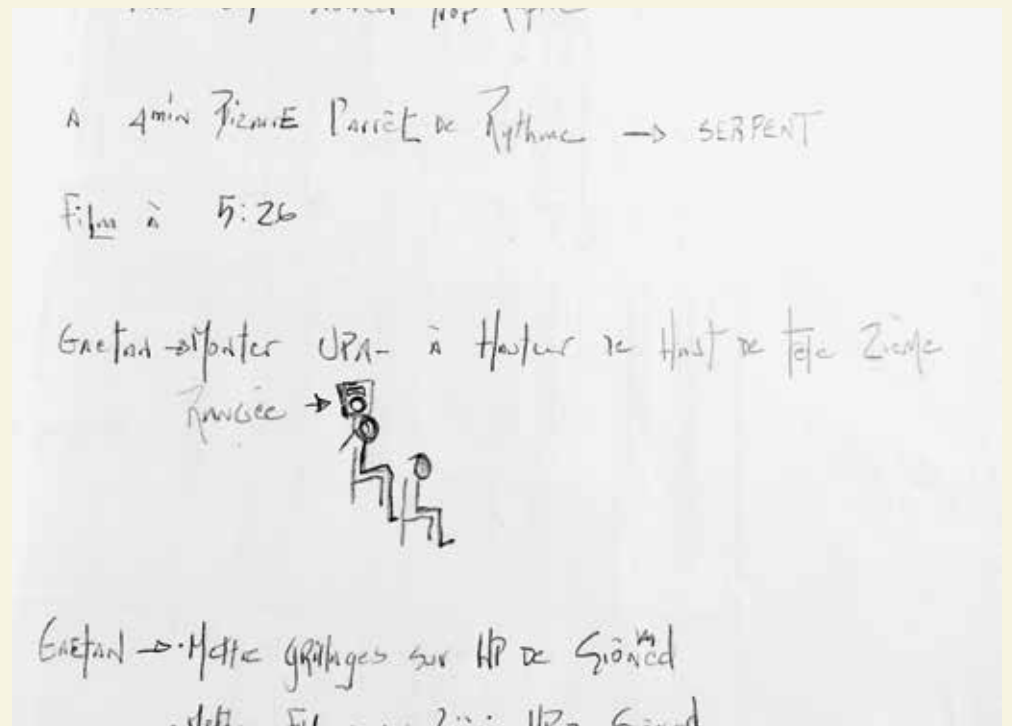 A 4min Bizarre l'arrêt de Rythme → SERPENT
Film à 5:26
Gaetan → Monter UPA- à Hauteur de Haut de tête 2ième
Rangée →
Gaetan → • Mettre GRillages sur HP de